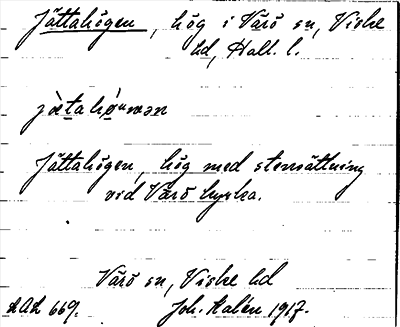 Jättahögen, hög i Värö sn, Viske
hd, Hall. l.
Jättahögen, hög med stensättning
vid Värö kyrka.
Värö sn, Viske hd
669. Joh. Kalén 1917.